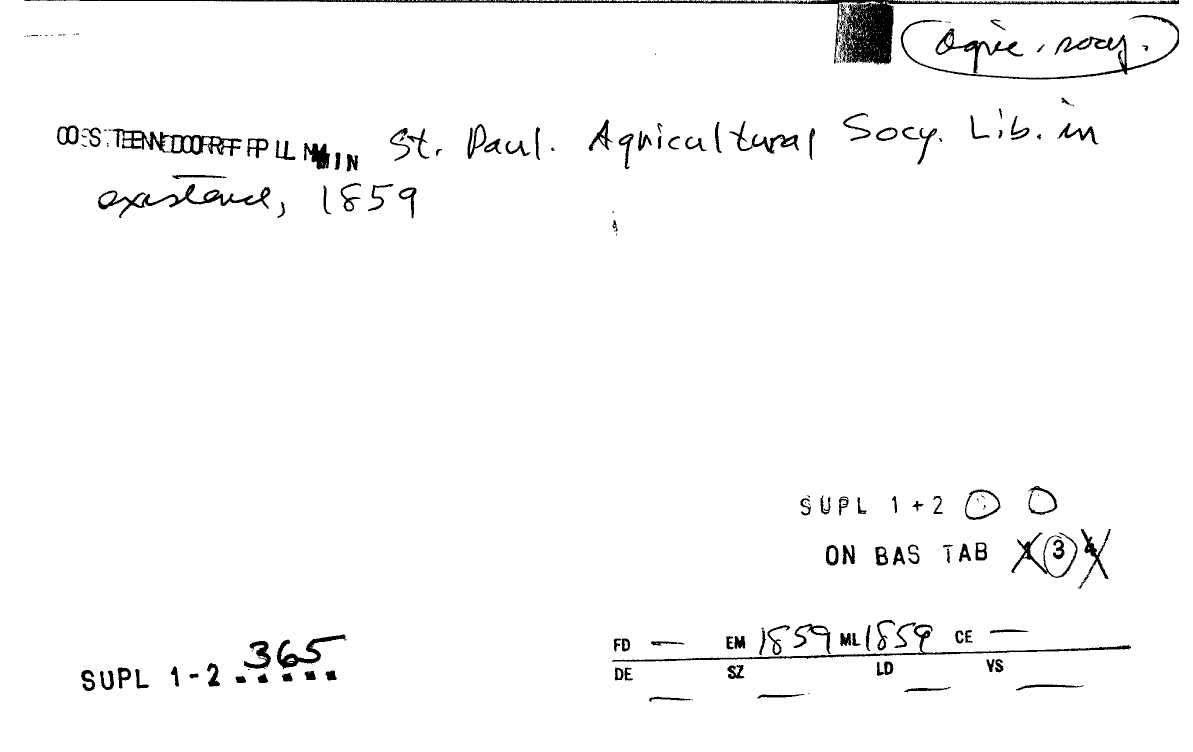 Agric. socy.
OSTENDORFF PL MIN St. Paul. Agricultural Socy. Lib. in
existence, 1859
SUPL 1+2 0 0
ON BAS TAB 3 4
SUPL 1-2 365
FD — EM 1859 ML 1859 CE —
DE — SZ — LD — VS —